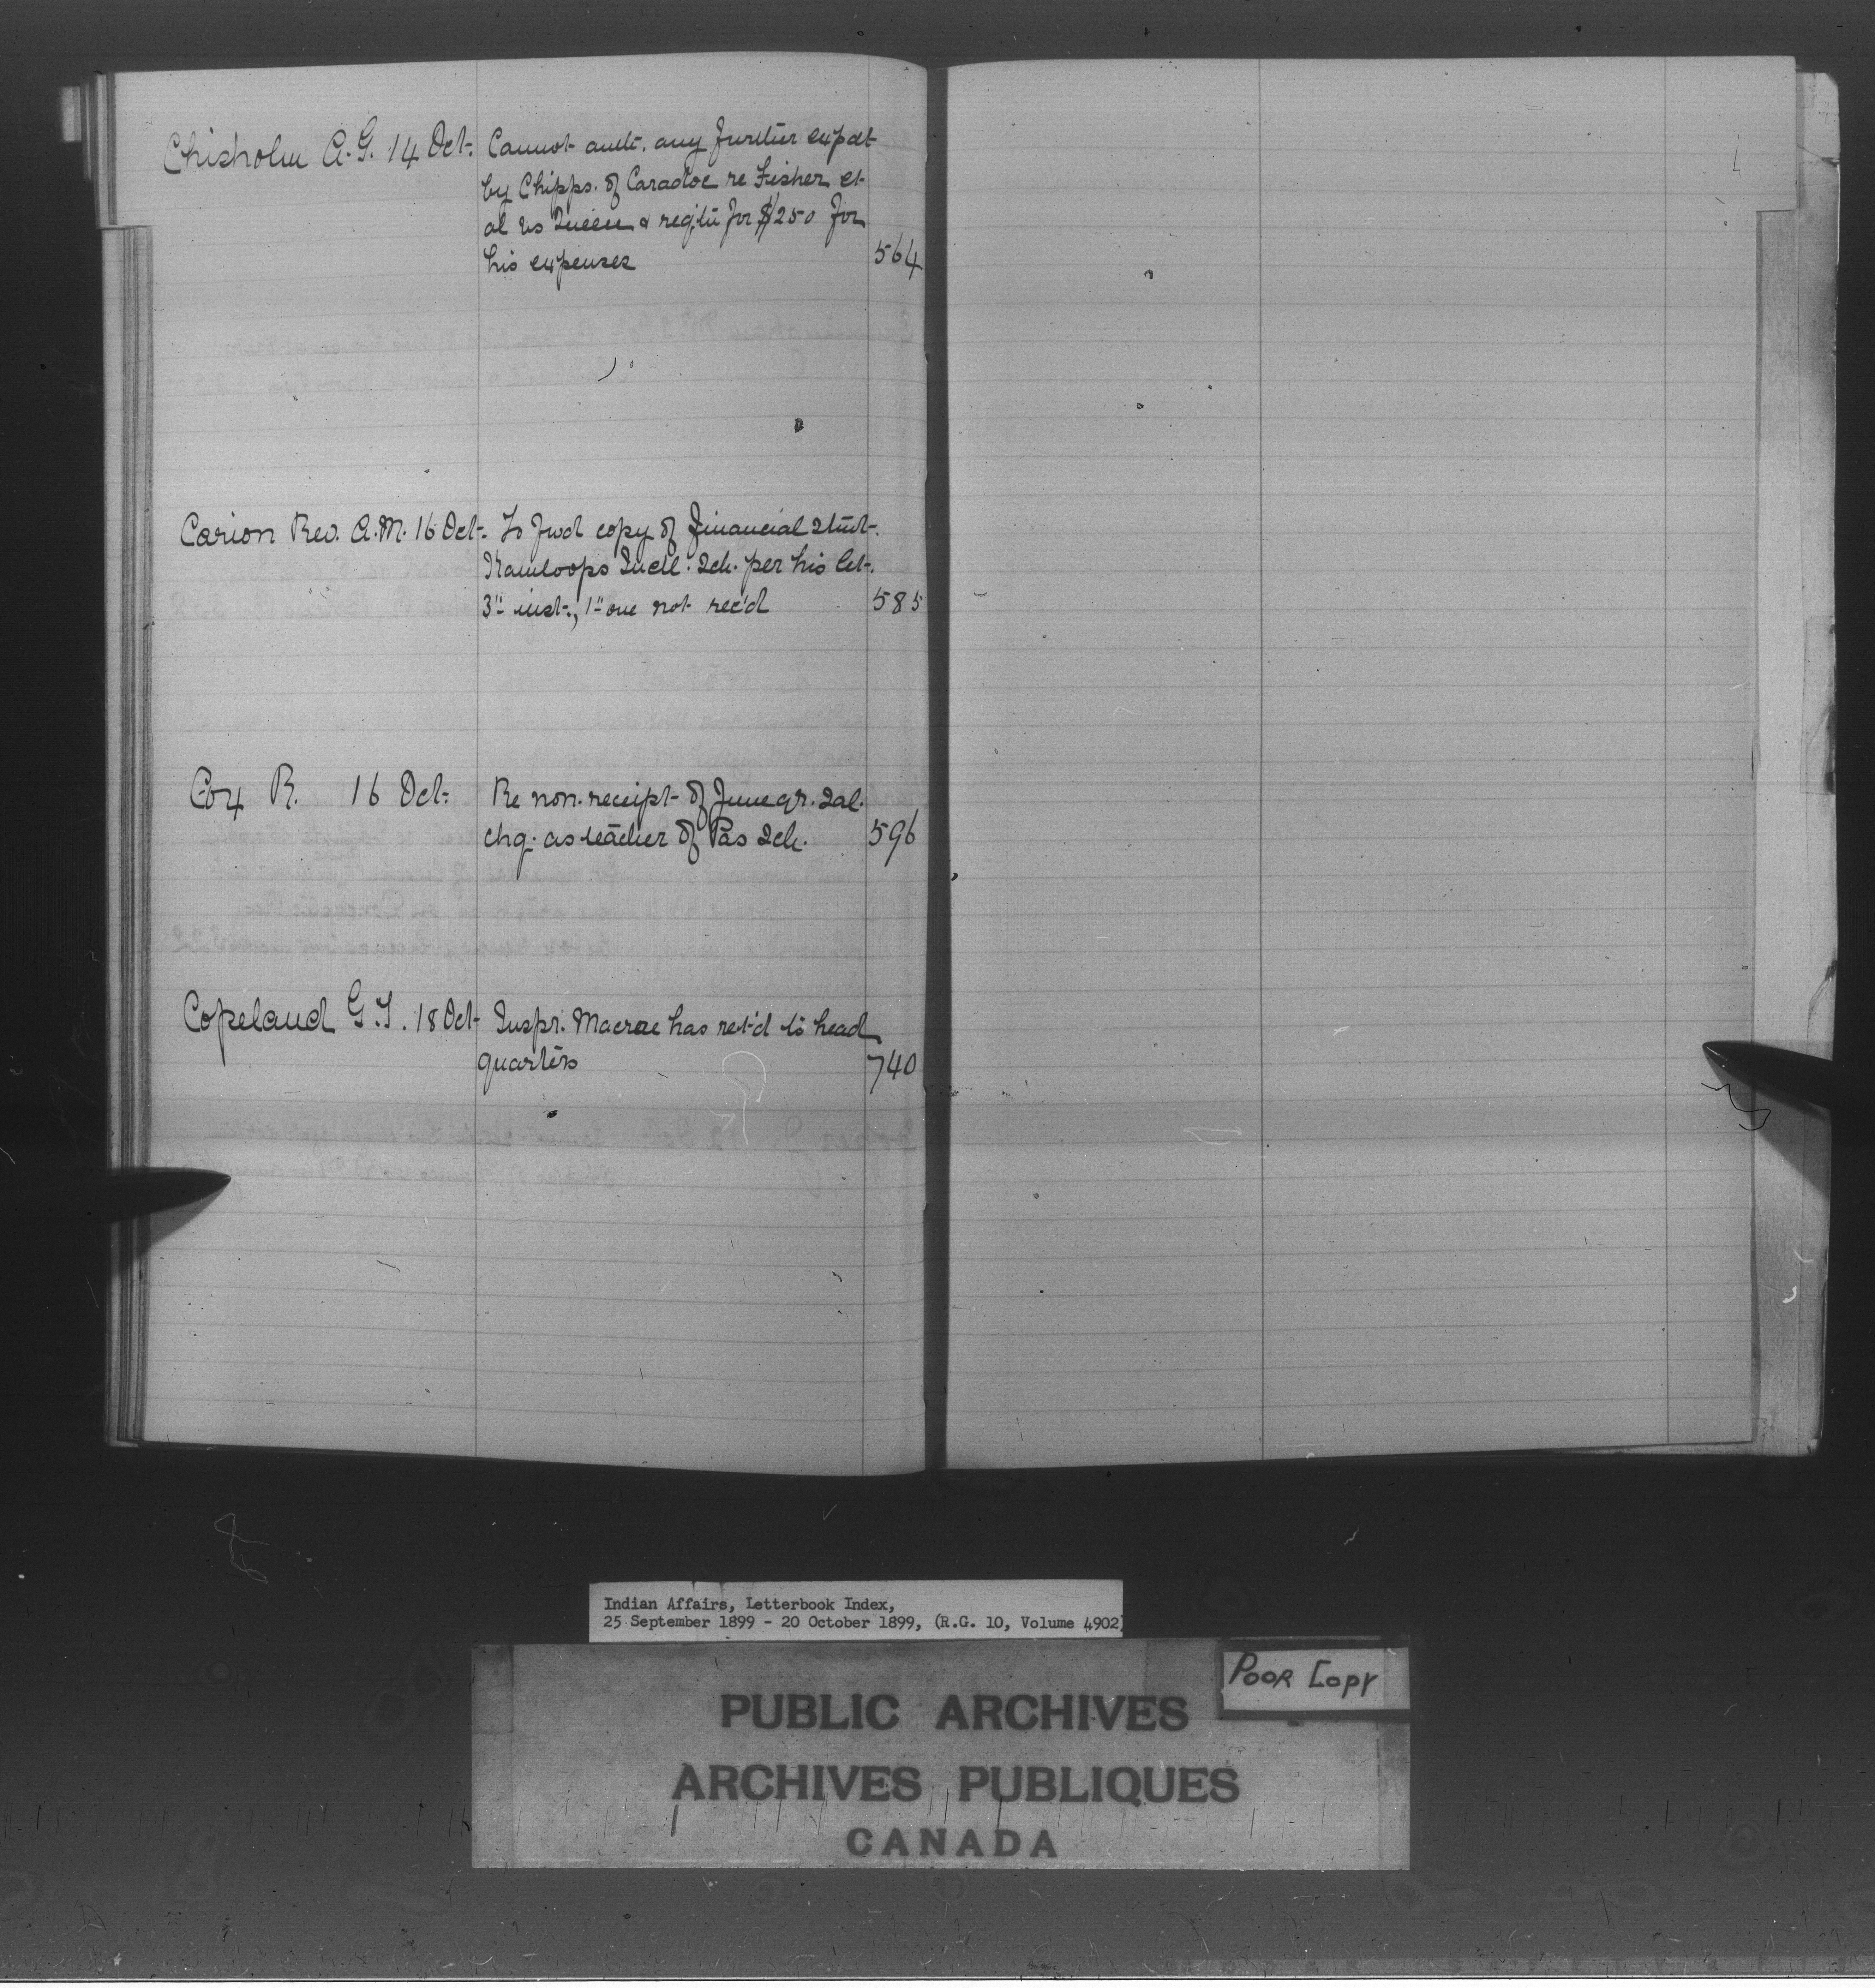 Chisholm A.G. 14 Oct. Cannot auth. any further expdt
by Chipps. of Caradoc re Fisher et
al vs Queen & reqtn for $250 for
his expenses 564
Carion Rev. A.M. 16 Oct. To fwd copy of financial stmt.
Kamloops Indl. Sch. per his let.
3" inst., 1" one not rec'd 585
Cox R. 16 Oct. Re non-receipt of June qr. sal.
chq. as teacher of Pas Sch. 596
Copeland G.T. 18 Oct Inspr. Macrae has ret'd to head
quarters 740
Indian Affairs, Letterbook Index,
25 September 1899 - 20 October 1899, (R.G. 10, Volume 4902)
POOR COPY
PUBLIC ARCHIVES
ARCHIVES PUBLIQUES
CANADA